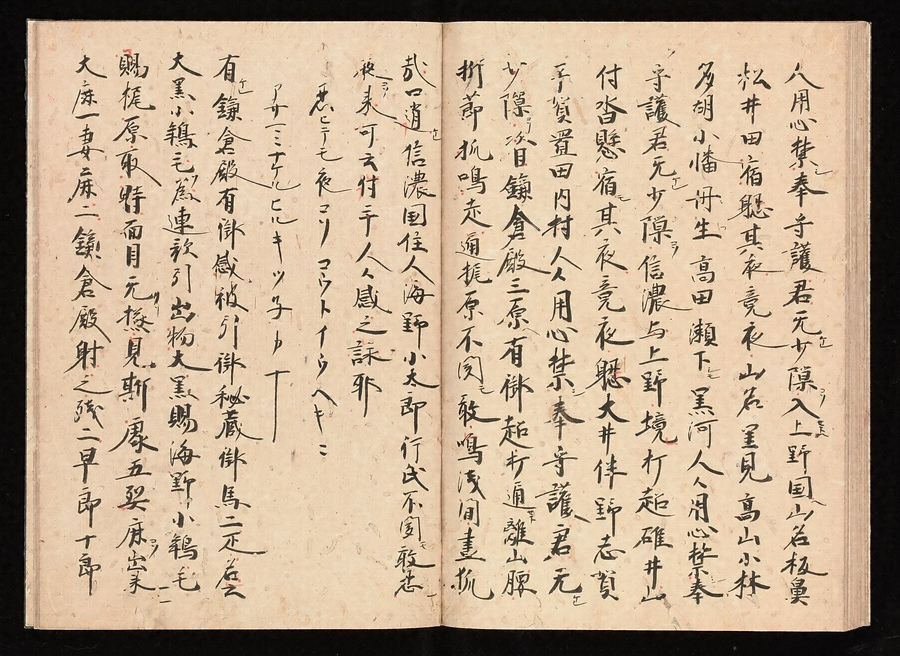 人用心禁奉守護君无少隙入上野国山名板鼻
松井田宿懸其夜竟夜山名里見高山小林
多胡小幡丹生高田瀬下黒河人人用心禁奉
守護君无少隙信濃与上野境打起碓井山
付沓懸宿其夜竟夜懸大井伴野志賀
置田内村人人用心禁奉守護君无
少隙次日鎌倉殿三原有御起打通離山腰
折節狐鳴走通梶原不聞敢鳴浅間昼狐
信濃国住人海野小太郎行氏不聞敢
夜来可云付千人人感之詠耶
忍ヒテモ夜コソコウトイウヘキニ
アサミニナケルヒルキツ子カナ
有鎌倉殿有御感被引御秘蔵御馬二疋名云
大黒小鵇毛為連歌引出物大黒賜海野小鵇毛
賜梶原取時面目无極見斯處五
大鹿一妻鹿二鎌倉殿射之残二早郎十郎